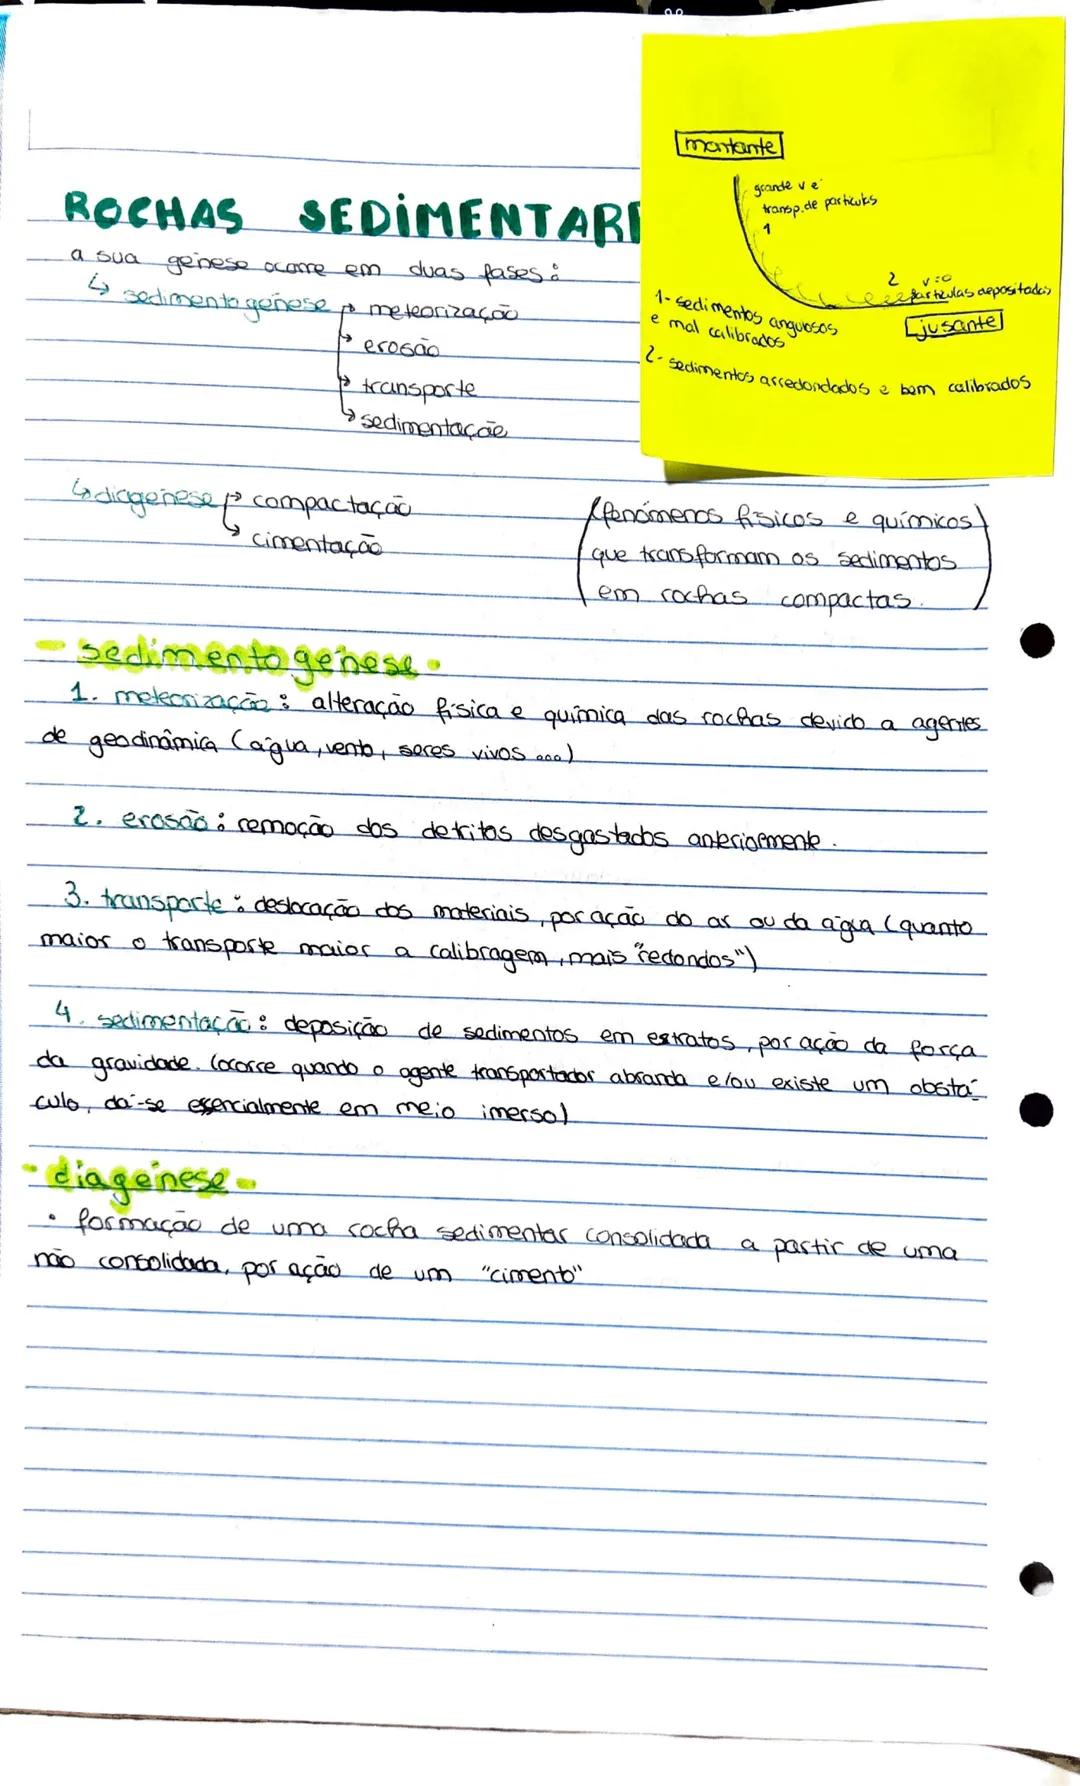 montante
grande v e
transp. de partículas
1
2 v=0
partículas depositadas
jusante
1- sedimentos angulosos
e mal calibrados
2- sedimentos arredondados e bem calibrados
ROCHAS SEDIMENTAR
a sua génese ocorre em duas fases:
↳ sedimentogénese → meteorização
↳ erosão
↳ transporte
↳ sedimentação
↳ diagénese → compactação
↳ cimentação
(fenómenos físicos e químicos)
que transformam os sedimentos
em rochas compactas.
- sedimentogénese -
1. meteorização: alteração física e química das rochas devido a agentes
de geodinâmica (água, vento, seres vivos ...)
2. erosão: remoção dos detritos desgastados anteriormente.
3. transporte: deslocação dos materiais, por ação do ar ou da água (quanto
maior o transporte maior a calibragem, mais "redondos")
4. sedimentação: deposição de sedimentos em estratos, por ação da força
da gravidade. (ocorre quando o agente transportador abranda e/ou existe um obstá-
culo, dá-se essencialmente em meio imerso)
- diagénese -
• formação de uma rocha sedimentar consolidada a partir de uma
não consolidada, por ação de um "cimento"